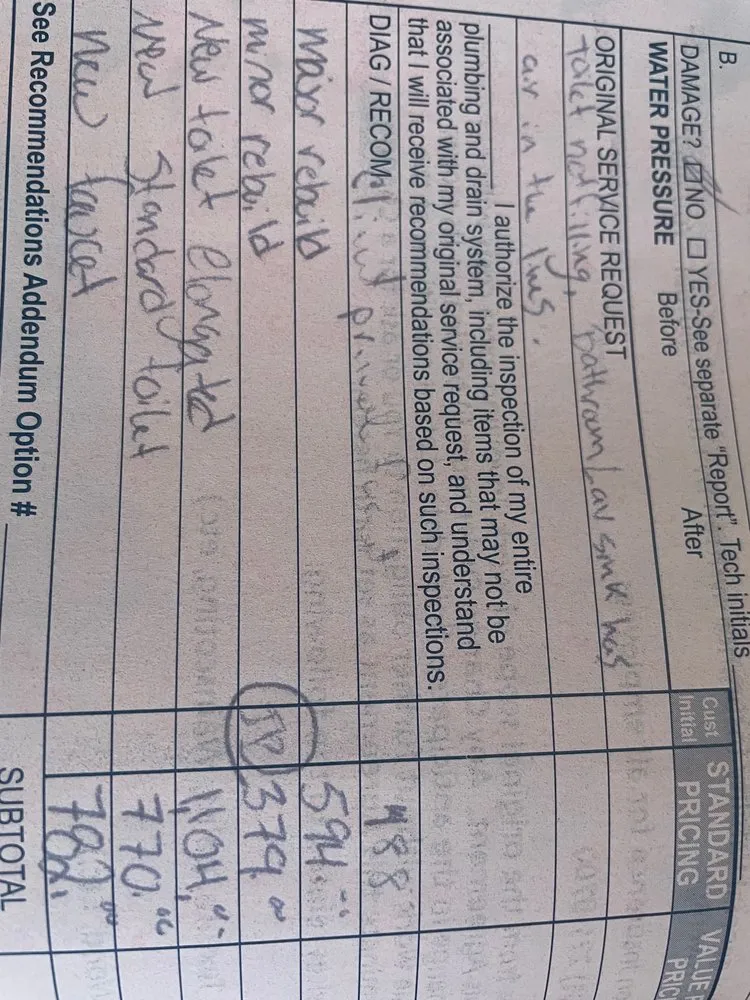 B.
DAMAGE? ☑ NO ☐ YES-See separate "Report". Tech initials
WATER PRESSURE Before After
Cust Initial STANDARD PRICING VALUE PRIC
ORIGINAL SERVICE REQUEST
toilet not filling, bathroom Lav sink has
air in the lines.
I authorize the inspection of my entire
plumbing and drain system, including items that may not be
associated with my original service request, and understand
that I will receive recommendations based on such inspections.
DIAG / RECOM 488
major rebuild 594
minor rebuild JP 379.00
New toilet Elongated 1,104.
New Standard toilet 770.00
New faucet 782.00
See Recommendations Addendum Option # SUBTOTAL